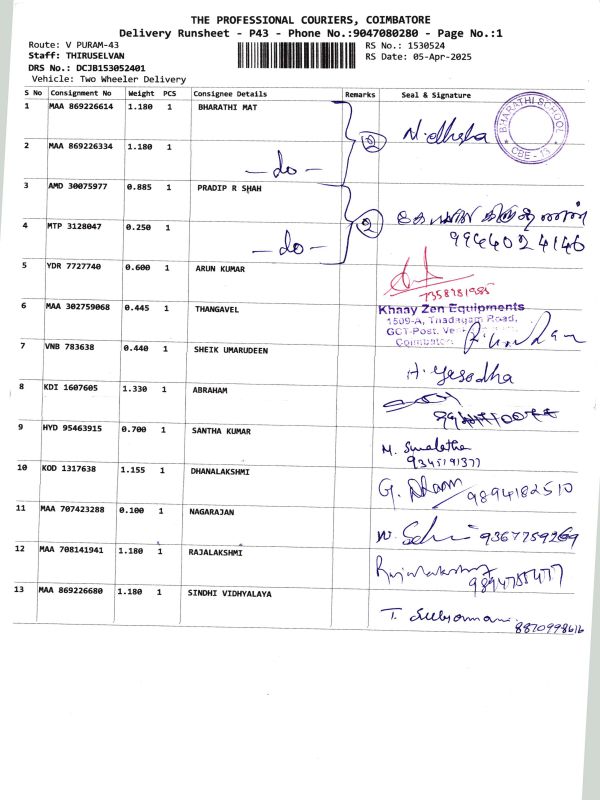 THE PROFESSIONAL COURIERS, COIMBATORE
Delivery Runsheet - P43 - Phone No.:9047080280 - Page No.:1
Route: V PURAM-43 RS No.: 1530524
Staff: THIRUSELVAN RS Date: 05-Apr-2025
DRS No.: DCJB153052401
Vehicle: Two Wheeler Delivery
S No Consignment No Weight PCS Consignee Details Remarks Seal & Signature
1 MAA 869226614 1.180 1 BHARATHI MAT
2 N. dheepa BHARATHI SCHOOL CBE - 13
2 MAA 869226334 1.180 1
- do -
3 AMD 30075977 0.885 1 PRADIP R SHAH
2
4 MTP 3128047 0.250 1
- do - 9944024146
5 YDR 7727740 0.600 1 ARUN KUMAR
7358981985
6 MAA 302759068 0.445 1 THANGAVEL Khaay Zen Equipments
1509-A, Thadagam Road,
GCT-Post,
Coimbatore
7 VNB 783638 0.440 1 SHEIK UMARUDEEN
H. Yesodha
8 KDI 1607605 1.330 1 ABRAHAM
9 HYD 95463915 0.700 1 SANTHA KUMAR
9345191377
10 KOD 1317638 1.155 1 DHANALAKSHMI
G. 9894182510
11 MAA 707423288 0.100 1 NAGARAJAN
9367759269
12 MAA 708141941 1.180 1 RAJALAKSHMI
Rajalakshmi
13 MAA 869226680 1.180 1 SINDHI VIDHYALAYA
T. 8870998616